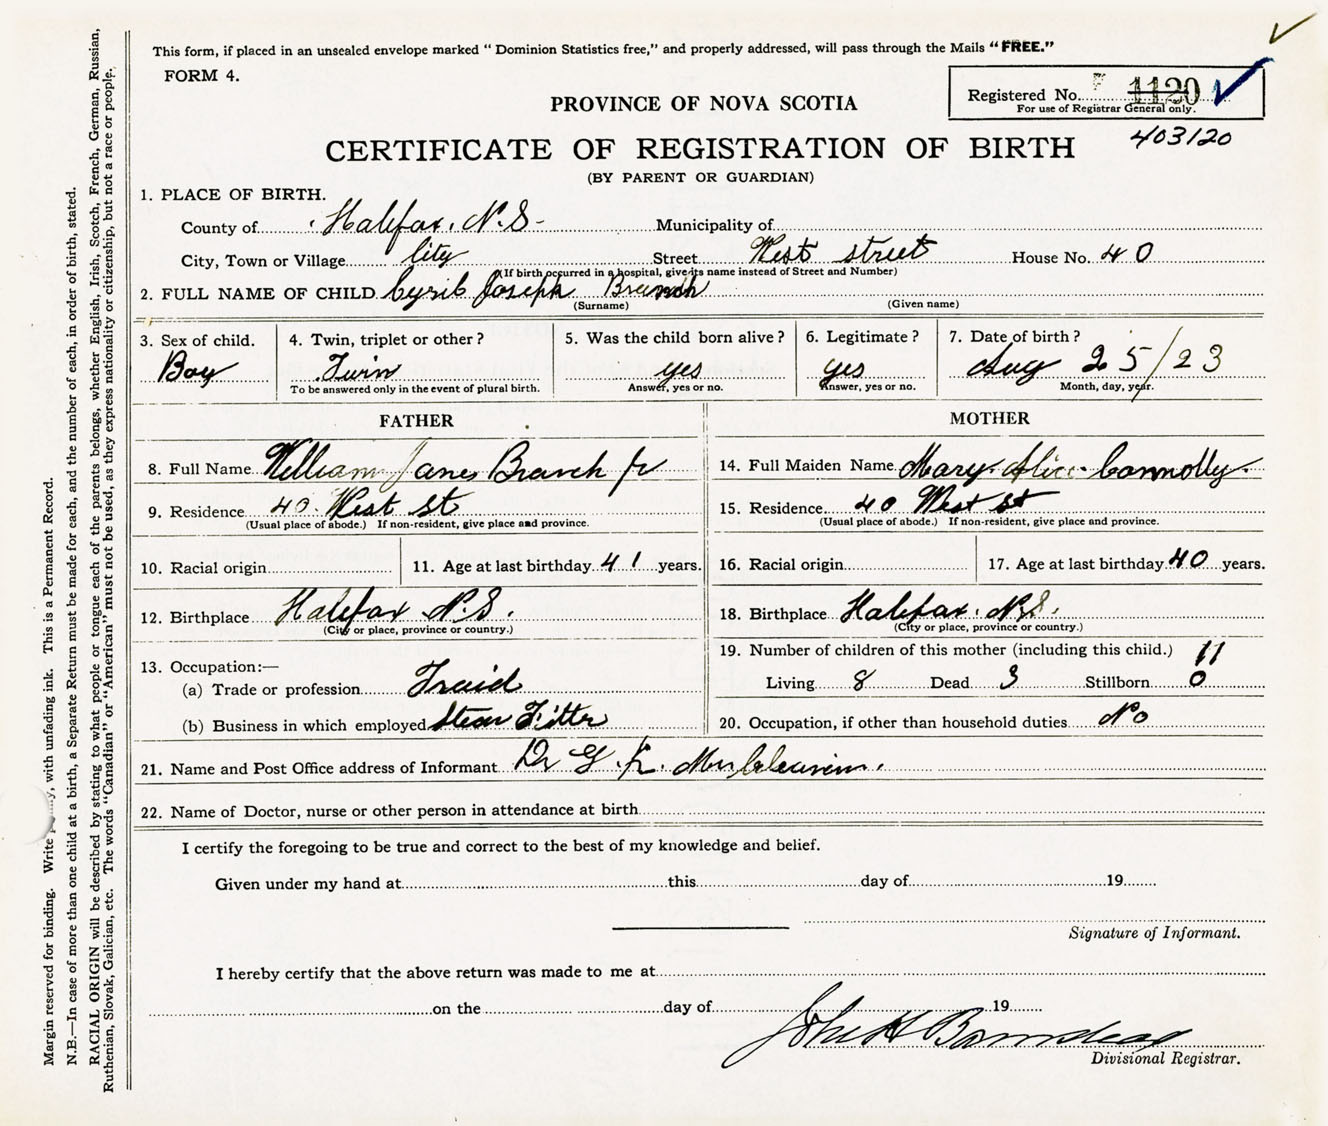 This form, if placed in an unsealed envelope marked " Dominion Statistics free," and properly addressed, will pass through the Mails "FREE."
FORM 4.
Registered No. 1120
For use of Registrar General only.
403120
PROVINCE OF NOVA SCOTIA
CERTIFICATE OF REGISTRATION OF BIRTH
(BY PARENT OR GUARDIAN)
1. PLACE OF BIRTH.
County of Halifax. N.S- Municipality of
City, Town or Village City Street West street House No. 40
(If birth occurred in a hospital, give its name instead of Street and Number)
2. FULL NAME OF CHILD Cyril Joseph Branch
(Surname) (Given name)
3. Sex of child. 4. Twin, triplet or other ? 5. Was the child born alive ? 6. Legitimate ? 7. Date of birth ?
Boy Twin yes yes Aug 25/23
To be answered only in the event of plural birth. Answer, yes or no. Answer, yes or no. Month, day, year.
FATHER MOTHER
8. Full Name William James Branch Jr 14. Full Maiden Name Mary Alice Connolly
9. Residence 40 West St 15. Residence 40 West St
(Usual place of abode.) If non-resident, give place and province. (Usual place of abode.) If non-resident, give place and province.
10. Racial origin 11. Age at last birthday 41 years. 16. Racial origin 17. Age at last birthday 40 years.
12. Birthplace Halifax N.S. 18. Birthplace Halifax. N.S.
(City or place, province or country.) (City or place, province or country.)
13. Occupation:— 19. Number of children of this mother (including this child.) 11
(a) Trade or profession Living 8 Dead 3 Stillborn 0
(b) Business in which employed Steam Fitter 20. Occupation, if other than household duties No
21. Name and Post Office address of Informant Dr G. K.
22. Name of Doctor, nurse or other person in attendance at birth
I certify the foregoing to be true and correct to the best of my knowledge and belief.
Given under my hand at this day of 19
Signature of Informant.
I hereby certify that the above return was made to me at
on the day of 19
John H
Divisional Registrar.
Margin reserved for binding. Write , with unfading ink. This is a Permanent Record.
N.B.—In case of more than one child at a birth, a Separate Return must be made for each, and the number of each, in order of birth, stated.
RACIAL ORIGIN will be described by stating to what people or tongue each of the parents belongs, whether English, Irish, Scotch, French, German, Russian,
Ruthenian, Slovak, Galician, etc. The words "Canadian" or "American" must not be used, as they express nationality or citizenship, but not a race or people.